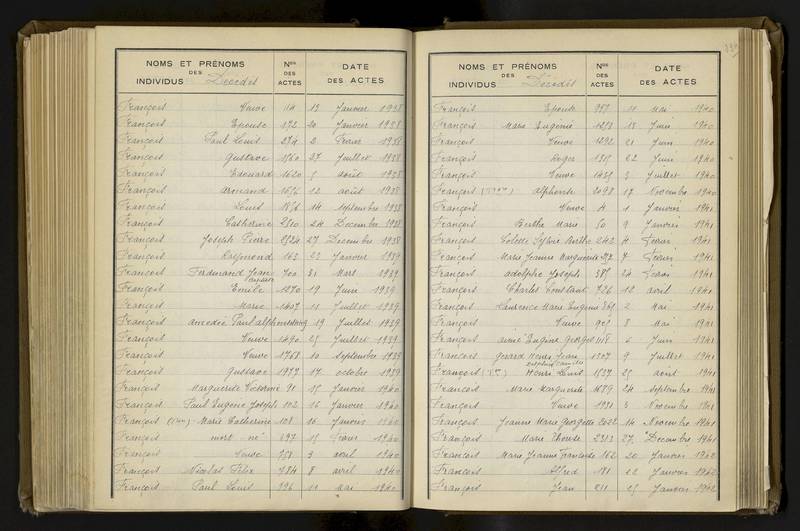 NOMS ET PRÉNOMS DES INDIVIDUS Décédés Nos DES ACTES DATE DES ACTES
François Veuve 114 13 Janvier 1938
François Epouse 172 20 Janvier 1938
François Paul Louis 274 2 Février 1938
François Gustave 1560 27 Juillet 1938
François Edouard 1620 5 août 1938
François Armand 1656 12 août 1938
François Louis 1856 14 septembre 1938
François Catherine 2510 24 Décembre 1938
François Joseph Pierre 2524 27 Décembre 1938
François Raymond 163 23 Janvier 1939
François Ferdinand Jean Baptiste 700 31 Mars 1939
François Emile 1270 19 Juin 1939
François Marie 1407 11 Juillet 1939
François Amedée Paul alphonse 19 Juillet 1939
François Veuve 1490 25 Juillet 1939
François Veuve 1758 10 septembre 1939
François Gustave 1977 17 octobre 1939
François Marguerite Victorine 91 15 Janvier 1940
François Paul Eugène Joseph 102 16 Janvier 1940
François Marie Catherine 108 16 Janvier 1940
François mort né 397 15 Février 1940
François Veuve 758 3 avril 1940
François Nicolas Félix 784 8 avril 1940
François Paul Louis 996 11 mai 1940
NOMS ET PRÉNOMS DES INDIVIDUS Décédés Nos DES ACTES DATE DES ACTES
François Epouse 987 11 Mai 1940
François Marie Eugénie 1273 18 Juin 1940
François Veuve 1292 21 Juin 1940
François Roger 1315 22 Juin 1940
François Veuve 1439 3 Juillet 1940
François alphonse 2098 17 Novembre 1940
François Veuve 4 1 Janvier 1941
François Berthe Marie 50 9 Janvier 1941
François Colette Berthe 242 4 Février 1941
François Marie Jeanne Marguerite 7 Février 1941
François Adolphe Joseph 385 24 Février 1941
François Charles Constant 726 10 avril 1941
François Laurence Marie Eugénie 2 Mai 1941
François Veuve 905 8 Mai 1941
François Aimé Eugène Georges 1118 6 Juin 1941
François Gérard Henri Jean 1307 9 Juillet 1941
François Henri Louis 1537 25 août 1941
François Marie Marguerite 1679 24 septembre 1941
François Veuve 1931 5 Novembre 1941
François Jeanne Marie Georgette 14 Novembre 1941
François Marie Thérèse 2313 27 Décembre 1941
François Marie Jeanne Françoise 162 20 Janvier 1942
François Alfred 181 22 Janvier 1942
François Jean 211 25 Janvier 1942